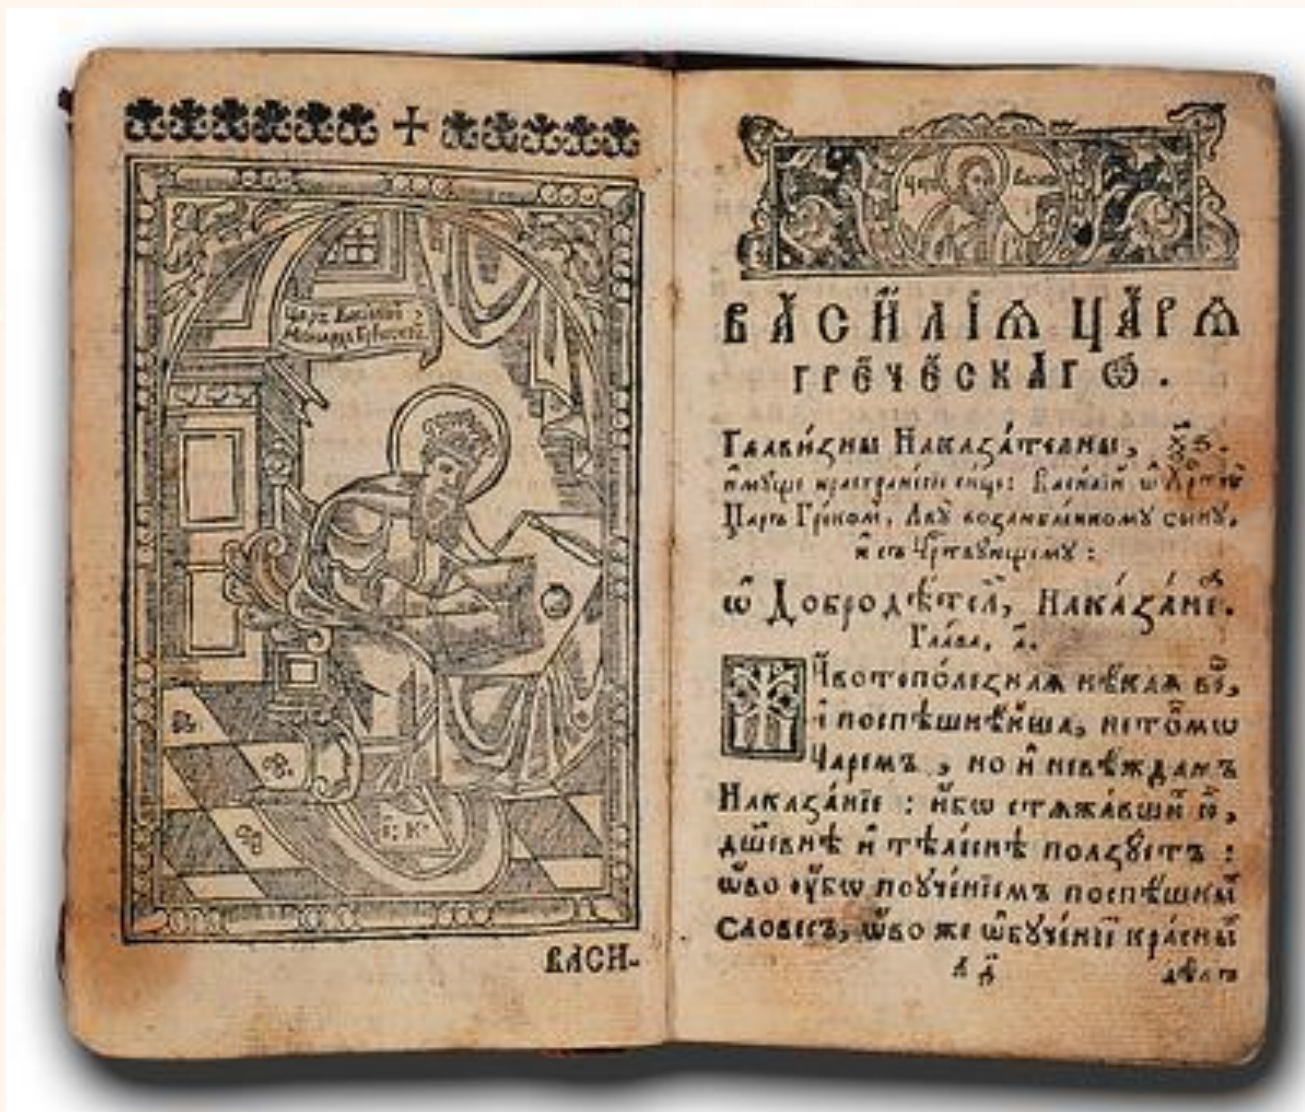 Царь Василий
Монарха Греческій.
ВАСИ-
Царь Василі
ВАСИ́ЛІѦ ЦАРѦ
ГРЕ́ЧЕСКАГѠ.
Глави́зны Наказа́телны, ѯ҃ѕ.
Василїи ѡ Хр҃тѣ
Царь Грекомъ, Лву возлюбленному сыну,
и съ Цр҃твующему:
ѡ Добродѣтел, Наказа́нїе.
Глава, а҃.
Ивотополезнаѧ нѣкаѧ
і поспѣшнѣйша, не то́мѡ
Царемъ, но и҆ невѣждамъ
Наказа́нїе: и҆бѡ стѧжа́вши є҆,
дш҃евнѣ и҆ тѣле́снѣ ползꙋетъ:
ѡ҆во ᲂу҆бѡ поꙋче́нїемъ поспѣшны
словесъ, ѡ҆во же ѡ҆бꙋче́нїи кра́сны
А д҃ дѣлъ